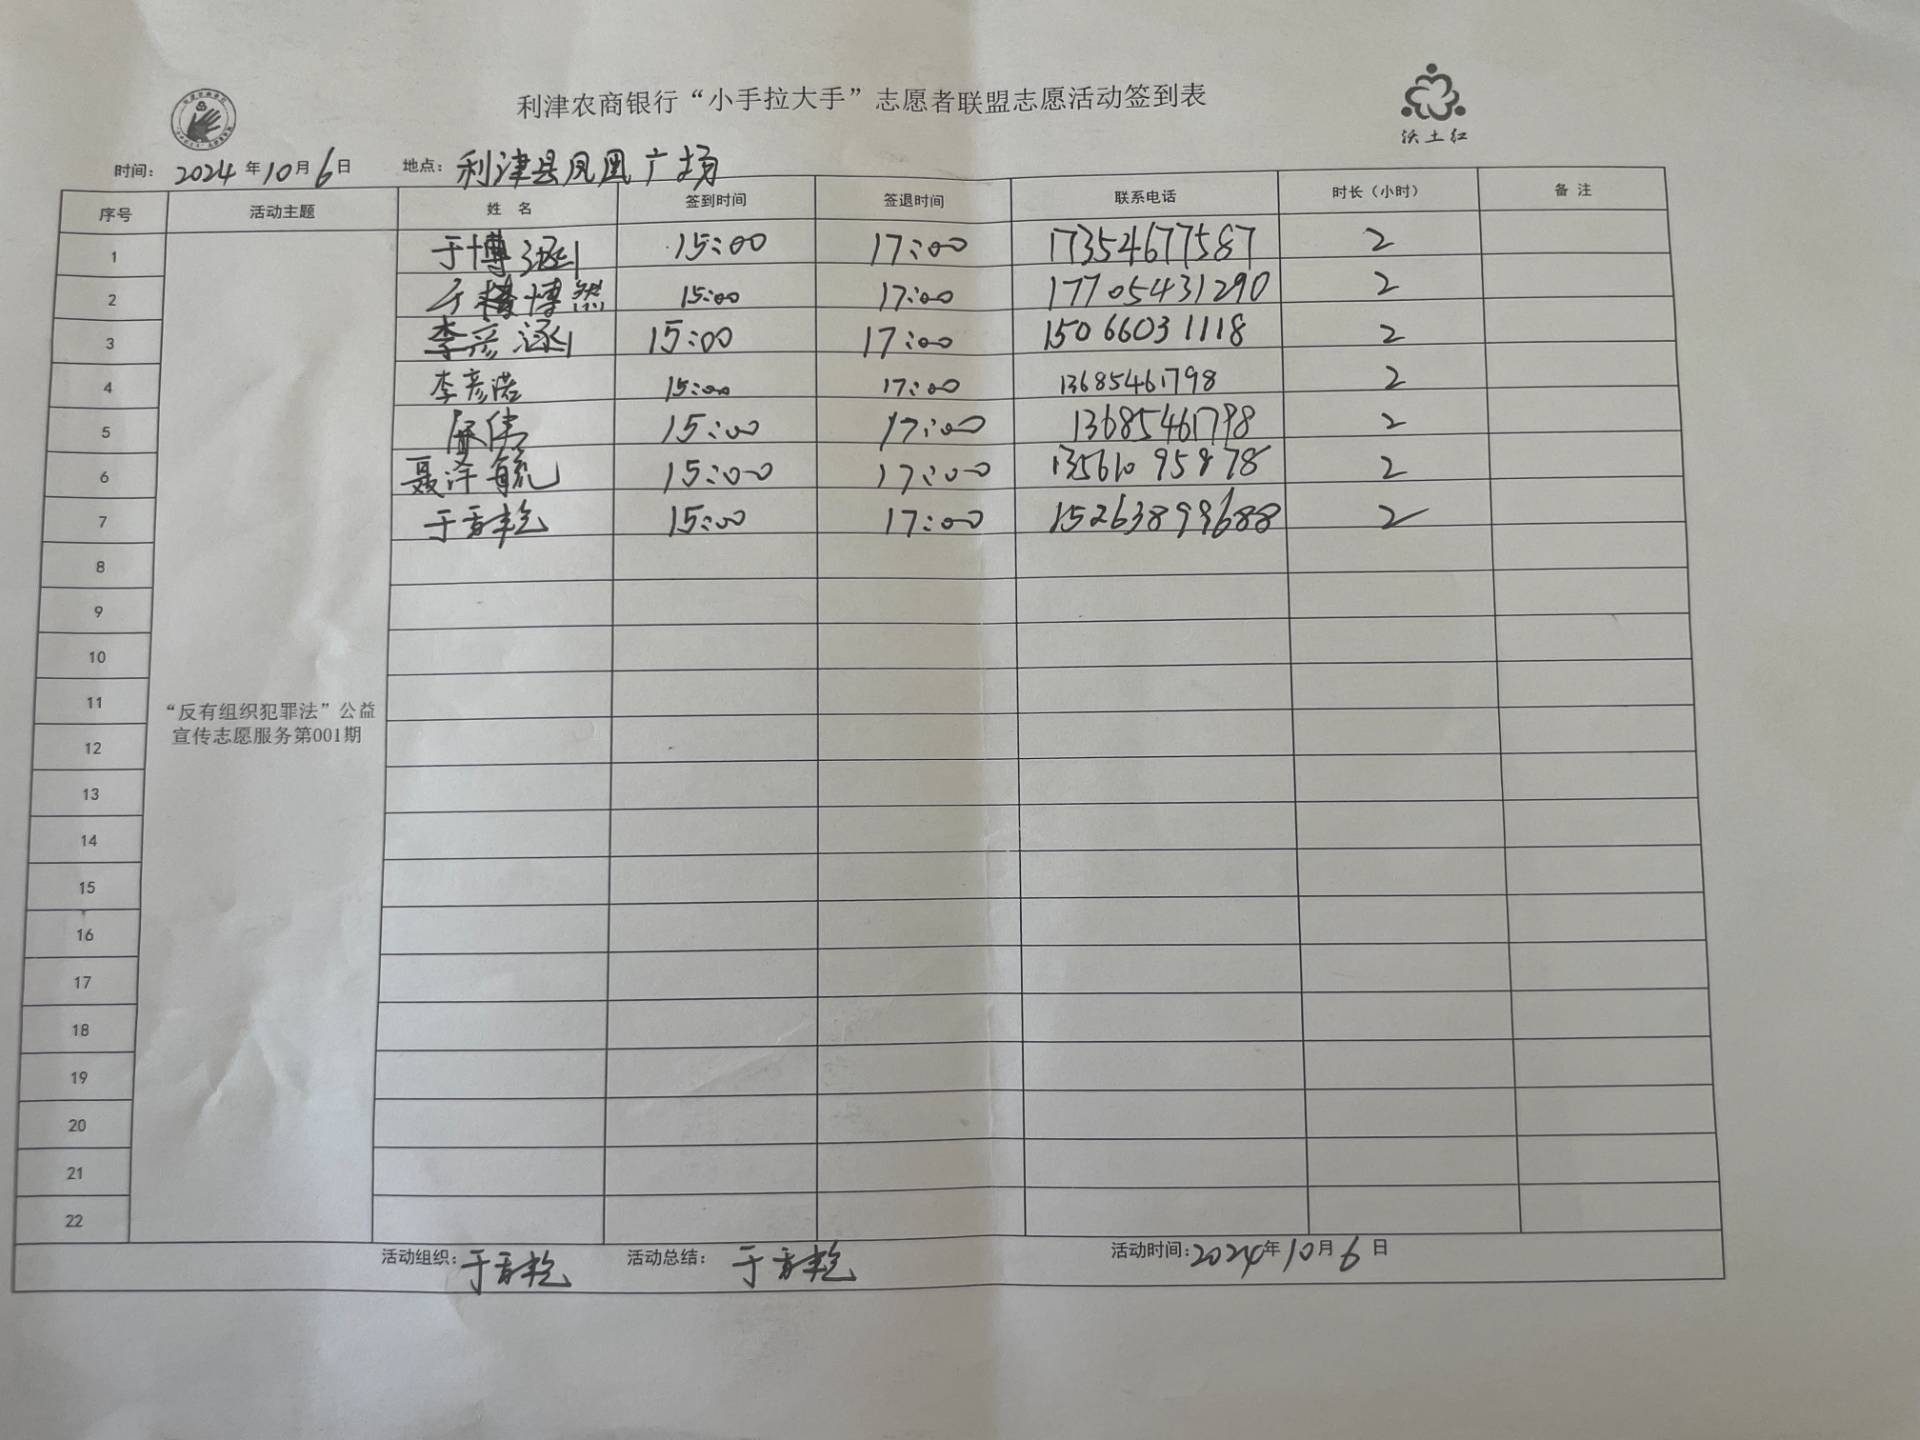 利津农商银行“小手拉大手”志愿者联盟志愿活动签到表
沃土红
时间：2024年10月6日 地点：利津县凤凰广场
序号 活动主题 姓名 签到时间 签退时间 联系电话 时长（小时） 备注
1 于博涵 15:00 17:00 17354677587 2
2 于博然 15:00 17:00 17705431290 2
3 李彦涵 15:00 17:00 15066031118 2
4 李彦滔 15:00 17:00 13685461798 2
5 15:00 17:00 13685461798 2
6 聂泽毓 15:00 17:00 13561095878 2
7 于春艳 15:00 17:00 15263899688 2
8
9
10
11
“反有组织犯罪法”公益
宣传志愿服务第001期
12
13
14
15
16
17
18
19
20
21
22
活动组织：于春艳 活动总结：于春艳 活动时间：2024年10月6日